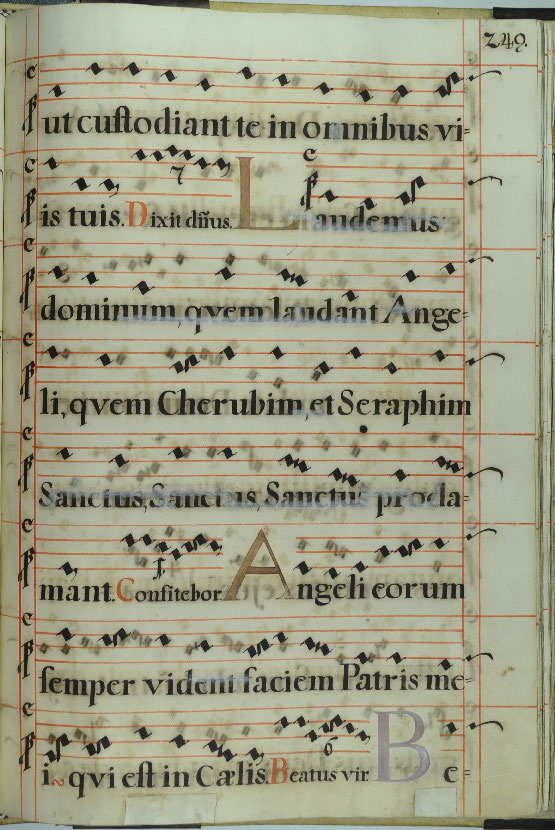 249.
ut cuſtodiant te in omnibus vi=
is tuis. Dixit dñus. Laudemus
dominum, qvem laudant Ange=
li, qvem Cherubim, et Seraphim
Sanctus, Sanctus, Sanctus procla=
mant. Confitebor Angeli eorum
ſemper vident faciem Patris me=
i, qvi eſt in Cælis. Beatus vir. Be=